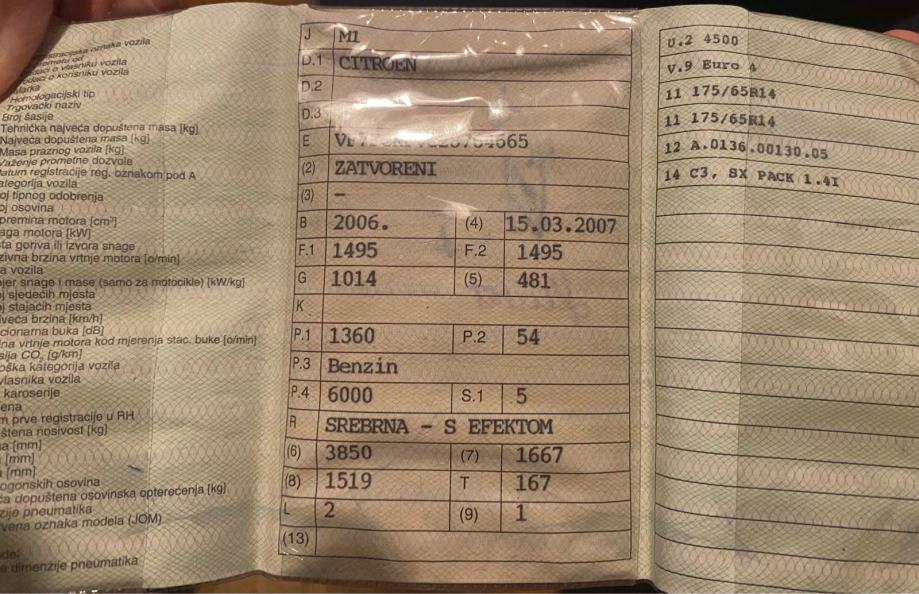 oznaka vozila
o vlasniku vozila
o korisniku vozila
Marka
Homologacijski tip
Trgovački naziv
Broj šasije
Tehnička najveća dopuštena masa [kg]
Najveća dopuštena masa [kg]
Masa praznog vozila [kg]
Važenje prometne dozvole
datum registracije reg. oznakom pod A
kategorija vozila
oj tipnog odobrenja
oj osovina
premina motora [cm³]
aga motora [kW]
sta goriva ili izvora snage
zivna brzina vrtnje motora [o/min]
a vozila
jer snage i mase (samo za motocikle) [kW/kg]
j sjedećih mjesta
j stajaćih mjesta
veća brzina [km/h]
cionarna buka [dB]
ina vrtnje motora kod mjerenja stac. buke [o/min]
sija CO₂ [g/km]
oška kategorija vozila
vlasnika vozila
karoserije
ena
m prve registracije u RH
štena nosivost [kg]
a [mm]
[mm]
[mm]
ogonskih osovina
ća dopuštena osovinska opterećenja [kg]
zije pneumatika
vena oznaka modela (JOM)
e dimenzije pneumatika
J M1
D.1 CITROEN
D.2
D.3
E
(2) ZATVORENI
(3) –
B 2006. (4) 15.03.2007
F.1 1495 F.2 1495
G 1014 (5) 481
K
P.1 1360 P.2 54
P.3 Benzin
P.4 6000 S.1 5
R SREBRNA - S EFEKTOM
(6) 3850 (7) 1667
(8) 1519 T 167
L 2 (9) 1
(13)
U.2 4500
V.9 Euro 4
11 175/65R14
11 175/65R14
12 A.0136.00130.05
14 C3, SX PACK 1.4I